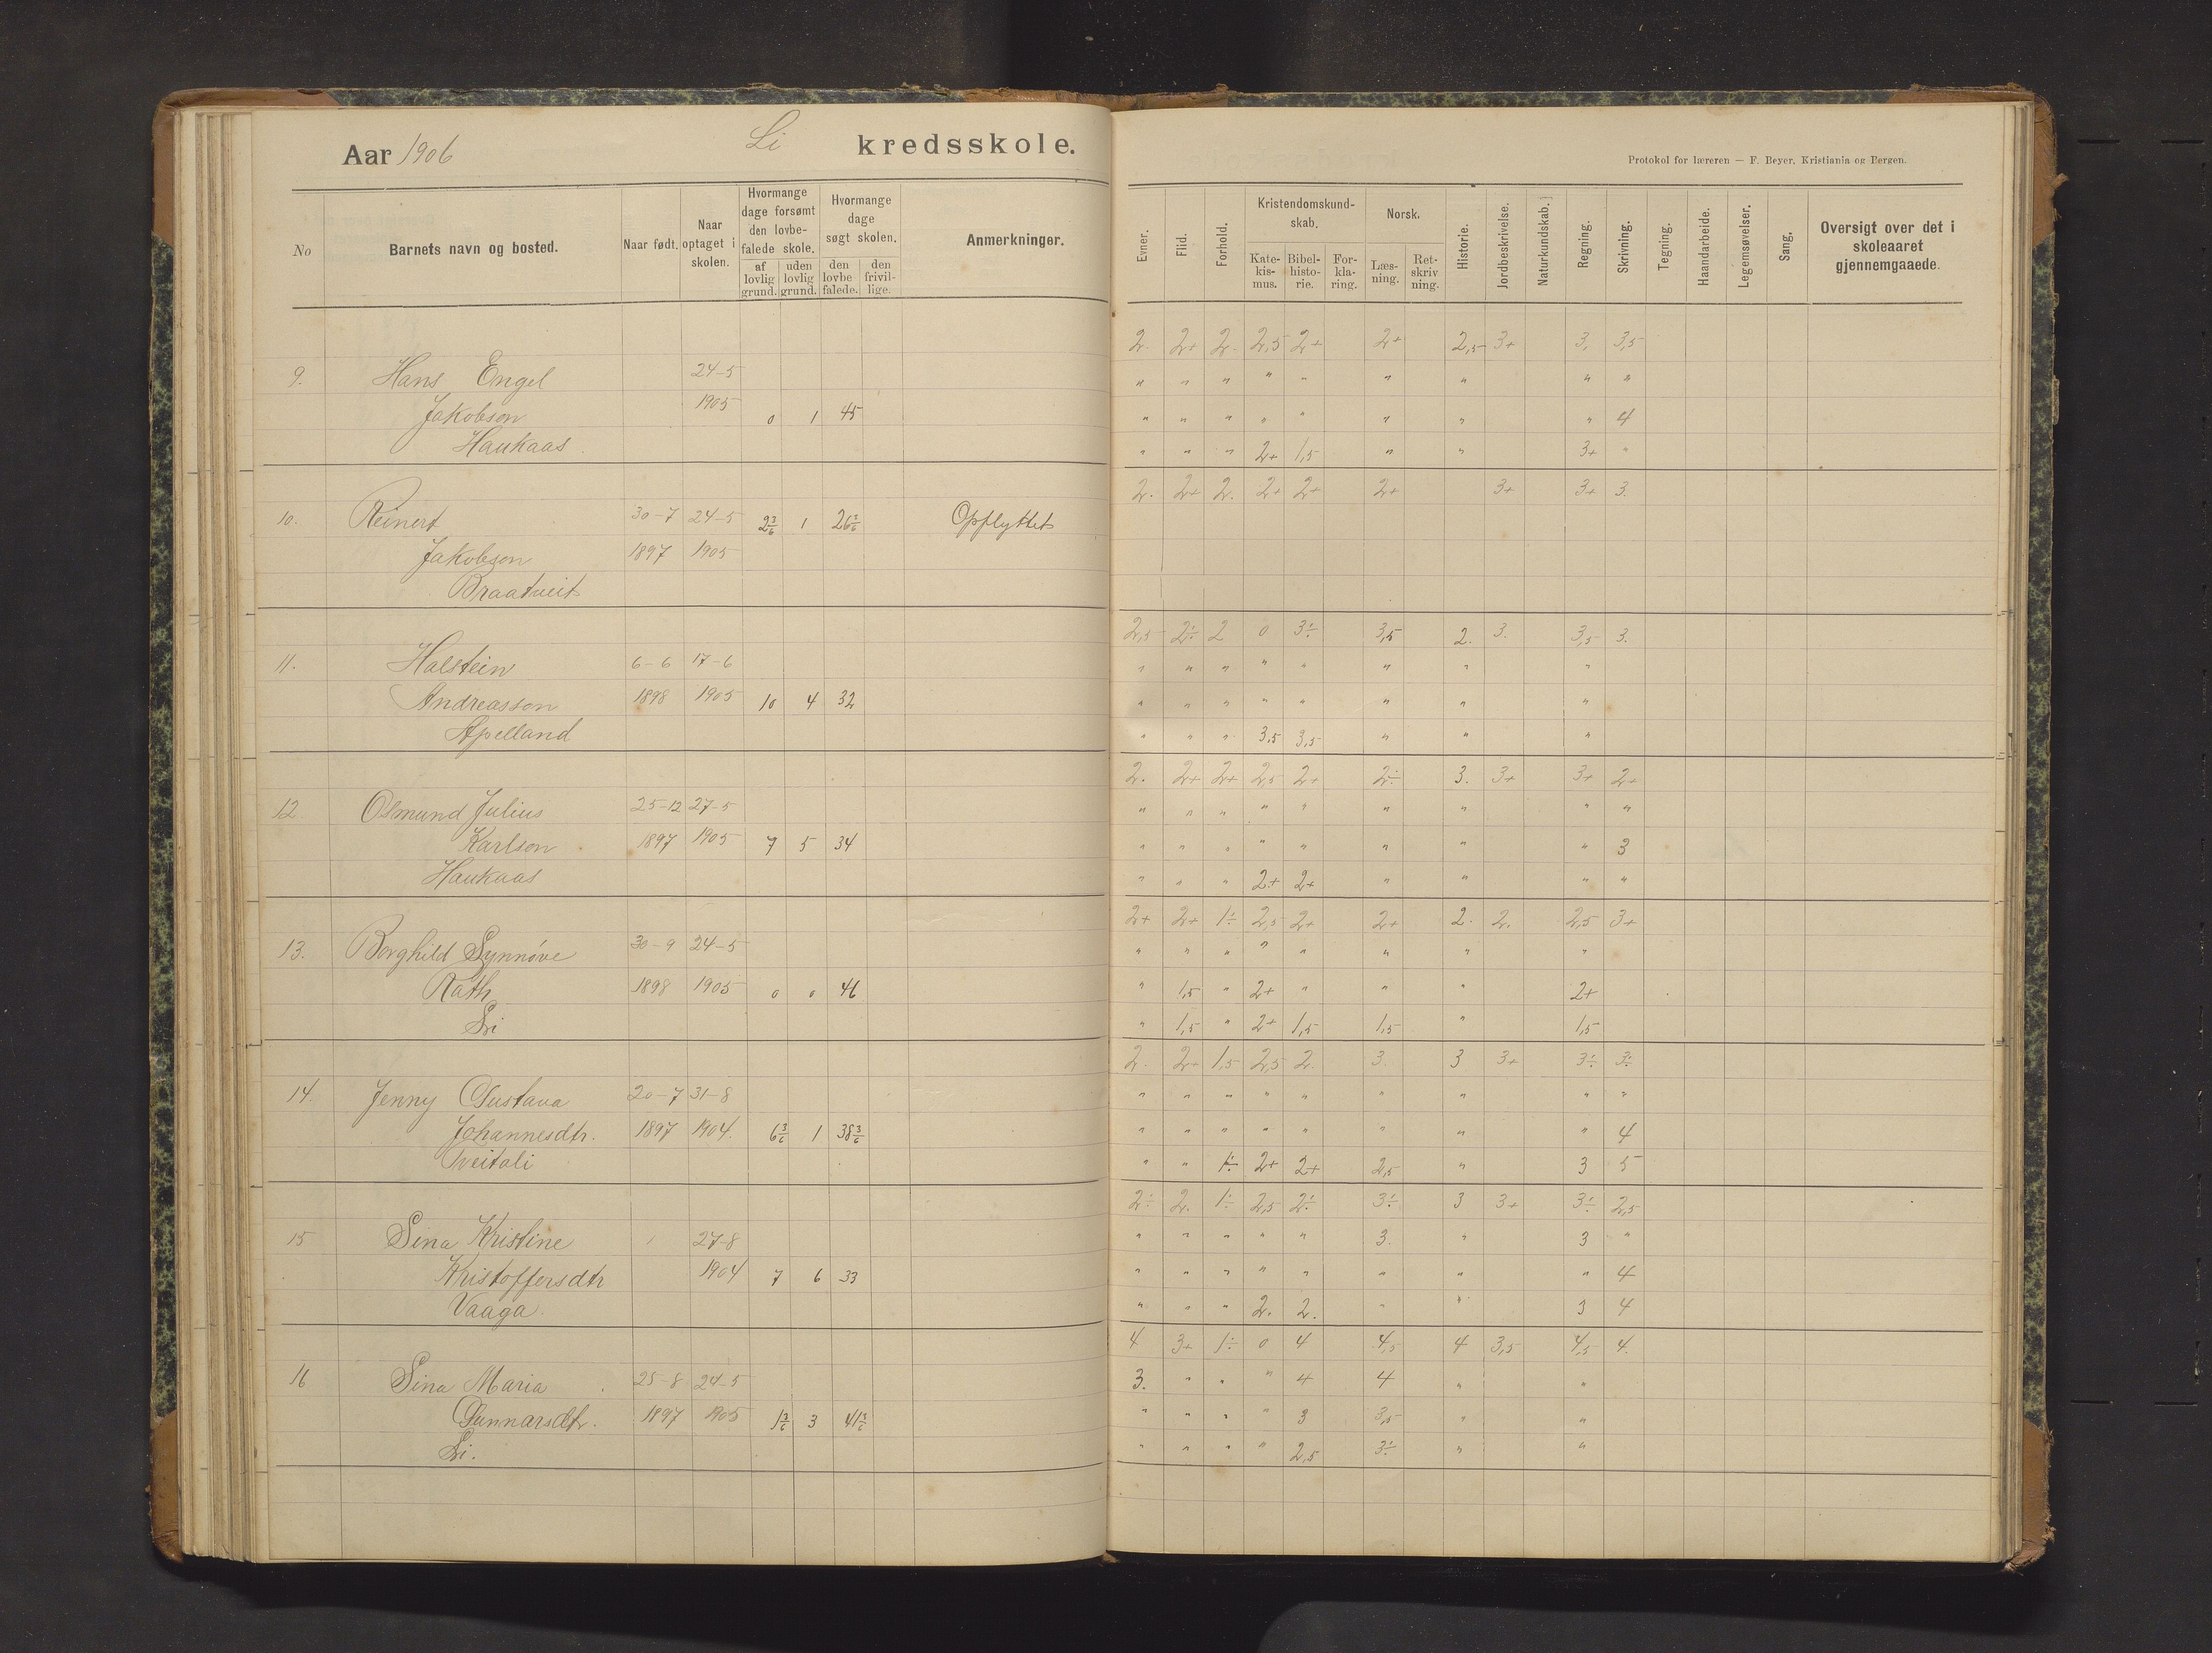 Aar 1906 Li kredsskole.
Protokol for læreren — F. Beyer, Kristiania og Bergen.
No Barnets navn og bosted. Naar født. Naar optaget i skolen. Hvormange dage forsømt den lovbefalede skole. af lovlig grund. uden lovlig grund. Hvormange dage søgt skolen. den lovbefalede. den frivillige. Anmerkninger.
Evner. Flid. Forhold. Kristendomskundskab. Katekismus. Bibelhistorie. Forklaring. Norsk. Læsning. Retskrivning. Historie. Jordbeskrivelse. Naturkundskab. Regning. Skrivning. Tegning. Haandarbeide. Legemsøvelser. Sang. Oversigt over det i skoleaaret gjennemgaaede.
2. 2+ 2. 2,5 2+ 2+ 2,5 3+ 3. 3,5
9. Hans Engel 24-5 " " " " " " " " "
Jakobson 1905 0 1 45 " " " " " " " " 4
Haukaas. " " " 2+ 1,5 " " 3+ "
2. 2+ 2. 2+ 2+ 2+ 3+ 3+ 3.
10. Reinert 30-7 24-5 2 3/6 1 26 3/6 Opflyttet
Jakobson 1897 1905
Braatveit
2,5 2÷ 2 0 3÷ 3,5 2. 3. 3,5 3.
11. Halstein 6-6 17-6 " " " " " " " "
Andreasson 1898 1905 10 4 32 " " " " " " " "
Apelland " " " 3,5 3,5 " " "
2. 2+ 2+ 2,5 2+ 2÷ 3. 3+ 3+ 2+
12 Osmund Julius 25-12 27-5 " " " " " " " " "
Karlson 1897 1905 7 5 34 " " " " " " " " 3
Haukaas " " " 2+ 2+ " " " "
2+ 2+ 1÷ 2,5 2+ 2+ 2. 2. 2,5 3+
13. Borghild Synnøve 30-9 24-5 " " " " " " " "
Rath 1898 1905 0 0 46 " 1,5 " 2+ " " " 2+
Li " 1,5 " 2+ 1,5 1,5 " 1,5
2. 2+ 1,5 2,5 2. 3. 3 3+ 3÷ 3÷
14. Jenny Gustava 20-7 31-8 " " " " " " " " "
Johannesdtr. 1897 1904. 6 3/6 1 38 3/6 " " " " " " " " 4
Tveitali " " 1÷ 2+ 2+ 2,5 " 3 5
2÷ 2. 1÷ 2,5 2÷ 3÷ 3 3+ 3÷ 2,5
15 Sina Kristine 27-8 " " " " " 3. " 3 "
Kristoffersdtr 1904 7 6 33 " " " " " " " " 4
Vaaga. " " " 2. 2. " " 3 4
4 3+ 1÷ 0 4 4,5 4 3,5 4,5 4.
16 Sina Maria 25-8 24-5 3. " " " 4 4 " "
Gunnarsdtr. 1897 1905 1 3/6 3 41 3/6 " " " " 3 3,5 " "
Li. " " " " 2,5 3÷ " "